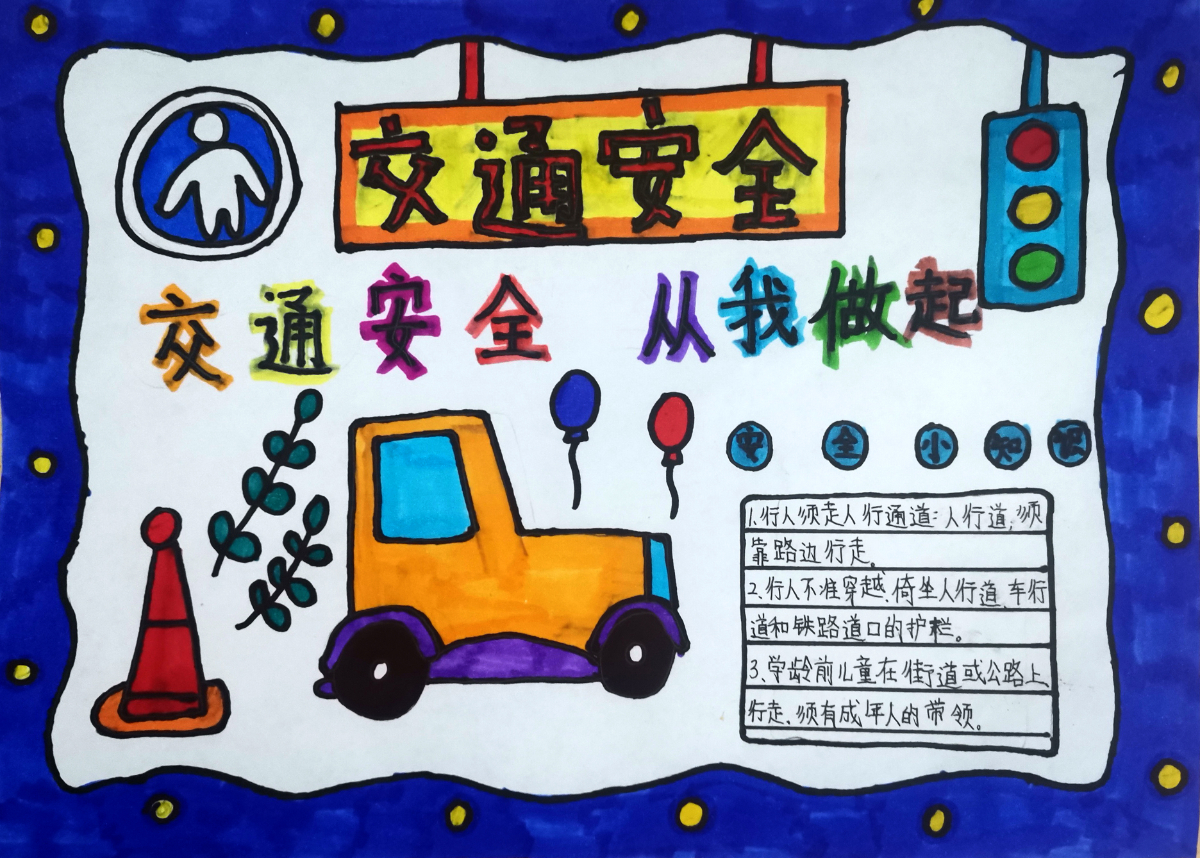 交通安全
交通安全 从我做起
安全小知识
1.行人须走人行通道:人行道,须
靠路边行走。
2.行人不准穿越、倚坐人行道、车行
道和铁路道口的护栏。
3.学龄前儿童在街道或公路上
行走、须有成年人的带领。